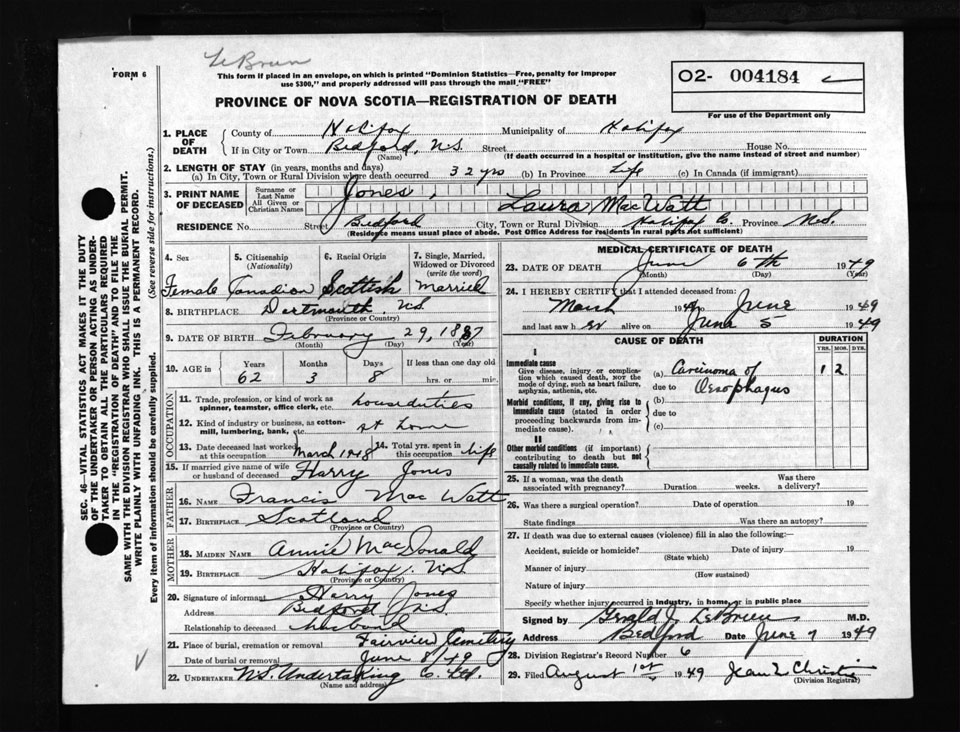 LeBrun
FORM 6
This form if placed in an envelope, on which is printed "Dominion Statistics—Free, penalty for improper
use $300," and properly addressed will pass through the mail "FREE"
O2- 004184
For use of the Department only
PROVINCE OF NOVA SCOTIA—REGISTRATION OF DEATH
1. PLACE OF DEATH County of Halifax Municipality of Halifax
If in City or Town Bedford, N.S. Street House No.
(Name) (If death occurred in a hospital or institution, give the name instead of street and number)
2. LENGTH OF STAY (in years, months and days)
(a) In City, Town or Rural Division where death occurred 32 yrs (b) In Province Life (c) In Canada (if immigrant)
3. PRINT NAME OF DECEASED Surname or Last Name Jones,
All Given or Christian Names Laura MacWatt
RESIDENCE No. Street Bedford City, Town or Rural Division Halifax Co. Province N.S.
(Residence means usual place of abode. Post Office Address for residents in rural parts not sufficient)
4. Sex 5. Citizenship (Nationality) 6. Racial Origin 7. Single, Married, Widowed or Divorced (write the word)
Female Canadian Scottish Married
8. BIRTHPLACE Dartmouth, N.S.
(Province or Country)
9. DATE OF BIRTH February 29, 1887
(Month) (Day) (Year)
10. AGE in Years Months Days If less than one day old
62 3 8 hrs. or min.
OCCUPATION
11. Trade, profession, or kind of work as spinner, teamster, office clerk, etc. houseduties
12. Kind of industry or business, as cotton-mill, lumbering, bank, etc. at home
13. Date deceased last worked at this occupation March 1948 14. Total yrs. spent in this occupation Life
15. If married give name of wife or husband of deceased Harry Jones
FATHER
16. NAME Francis MacWatt
17. BIRTHPLACE Scotland
(Province or Country)
MOTHER
18. MAIDEN NAME Annie MacDonald
19. BIRTHPLACE Halifax, N.S.
(Province or Country)
20. Signature of informant Harry Jones
Address Bedford N.S.
Relationship to deceased husband
21. Place of burial, cremation or removal Fairview Cemetery
Date of burial or removal June 8/49
22. UNDERTAKER N.S. Undertaking Co. Ltd.
(Name and address)
MEDICAL CERTIFICATE OF DEATH
23. DATE OF DEATH June 6th 1949
(Month) (Day) (Year)
24. I HEREBY CERTIFY that I attended deceased from:
March to June 1949
and last saw her alive on June 5 1949
CAUSE OF DEATH DURATION
YRS. MOS. DYS.
I
Immediate cause
Give disease, injury or complication which caused death, NOT the mode of dying, such as heart failure, asphyxia, asthenia, etc.
(a) Carcinoma of 1 2
due to Oesophagus
Morbid conditions, if any, giving rise to immediate cause (stated in order proceeding backwards from immediate cause).
(b)
due to
(c)
II
Other morbid conditions (if important) contributing to death but not causally related to immediate cause.
25. If a woman, was the death associated with pregnancy? Duration weeks. Was there a delivery?
26. Was there a surgical operation? Date of operation 19
State findings Was there an autopsy?
27. If death was due to external causes (violence) fill in also the following:—
Accident, suicide or homicide? Date of injury 19
(State which)
Manner of injury
(How sustained)
Nature of injury
Specify whether injury occurred in industry, in home, or in public place
Signed by Gerald J. LeBrun M.D.
Address Bedford Date June 7 1949
28. Division Registrar's Record Number 6
29. Filed August 1st 1949 Jean L. Christie
(Division Registrar)
SEC. 46—VITAL STATISTICS ACT MAKES IT THE DUTY
OF THE UNDERTAKER OR PERSON ACTING AS UNDER-
TAKER TO OBTAIN ALL THE PARTICULARS REQUIRED
IN THE "REGISTRATION OF DEATH" AND TO FILE THE
SAME WITH THE DIVISION REGISTRAR WHO SHALL ISSUE THE BURIAL PERMIT.
WRITE PLAINLY WITH UNFADING INK. THIS IS A PERMANENT RECORD.
Every item of information should be carefully supplied. (See reverse side for instructions.)